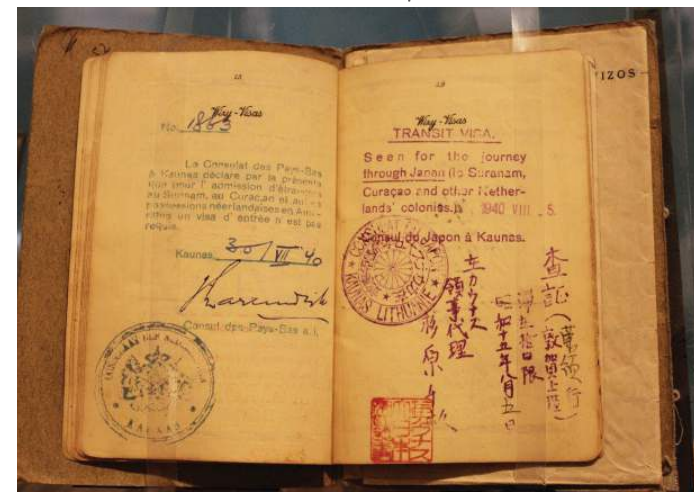 Wizy - Visas
No. 1863
Le Consulat des Pays-Bas
à Kaunas déclare par la présente
que pour l'admission d'étrangers
au Surinam, au Curaçao et autres
possessions néerlandaises en Amé-
rique un visa d'entrée n'est pas
requis.
Kaunas, 30/VII 40
Consul des Pays-Bas a.i.
KAUNAS
Wizy - Visas
TRANSIT VISA.
Seen for the journey
through Japan (to Suranam,
Curaçao and other Nether-
lands' colonies.) 1940 VIII 5.
Consul du Japon à Kaunas.
CONSULAT DU JAPON
KAUNAS LITHUANIE
査証(華領行)
(敦賀上陸)
昭和十五年八月五日
在カウナス
領事代理
杉原
VIZOS